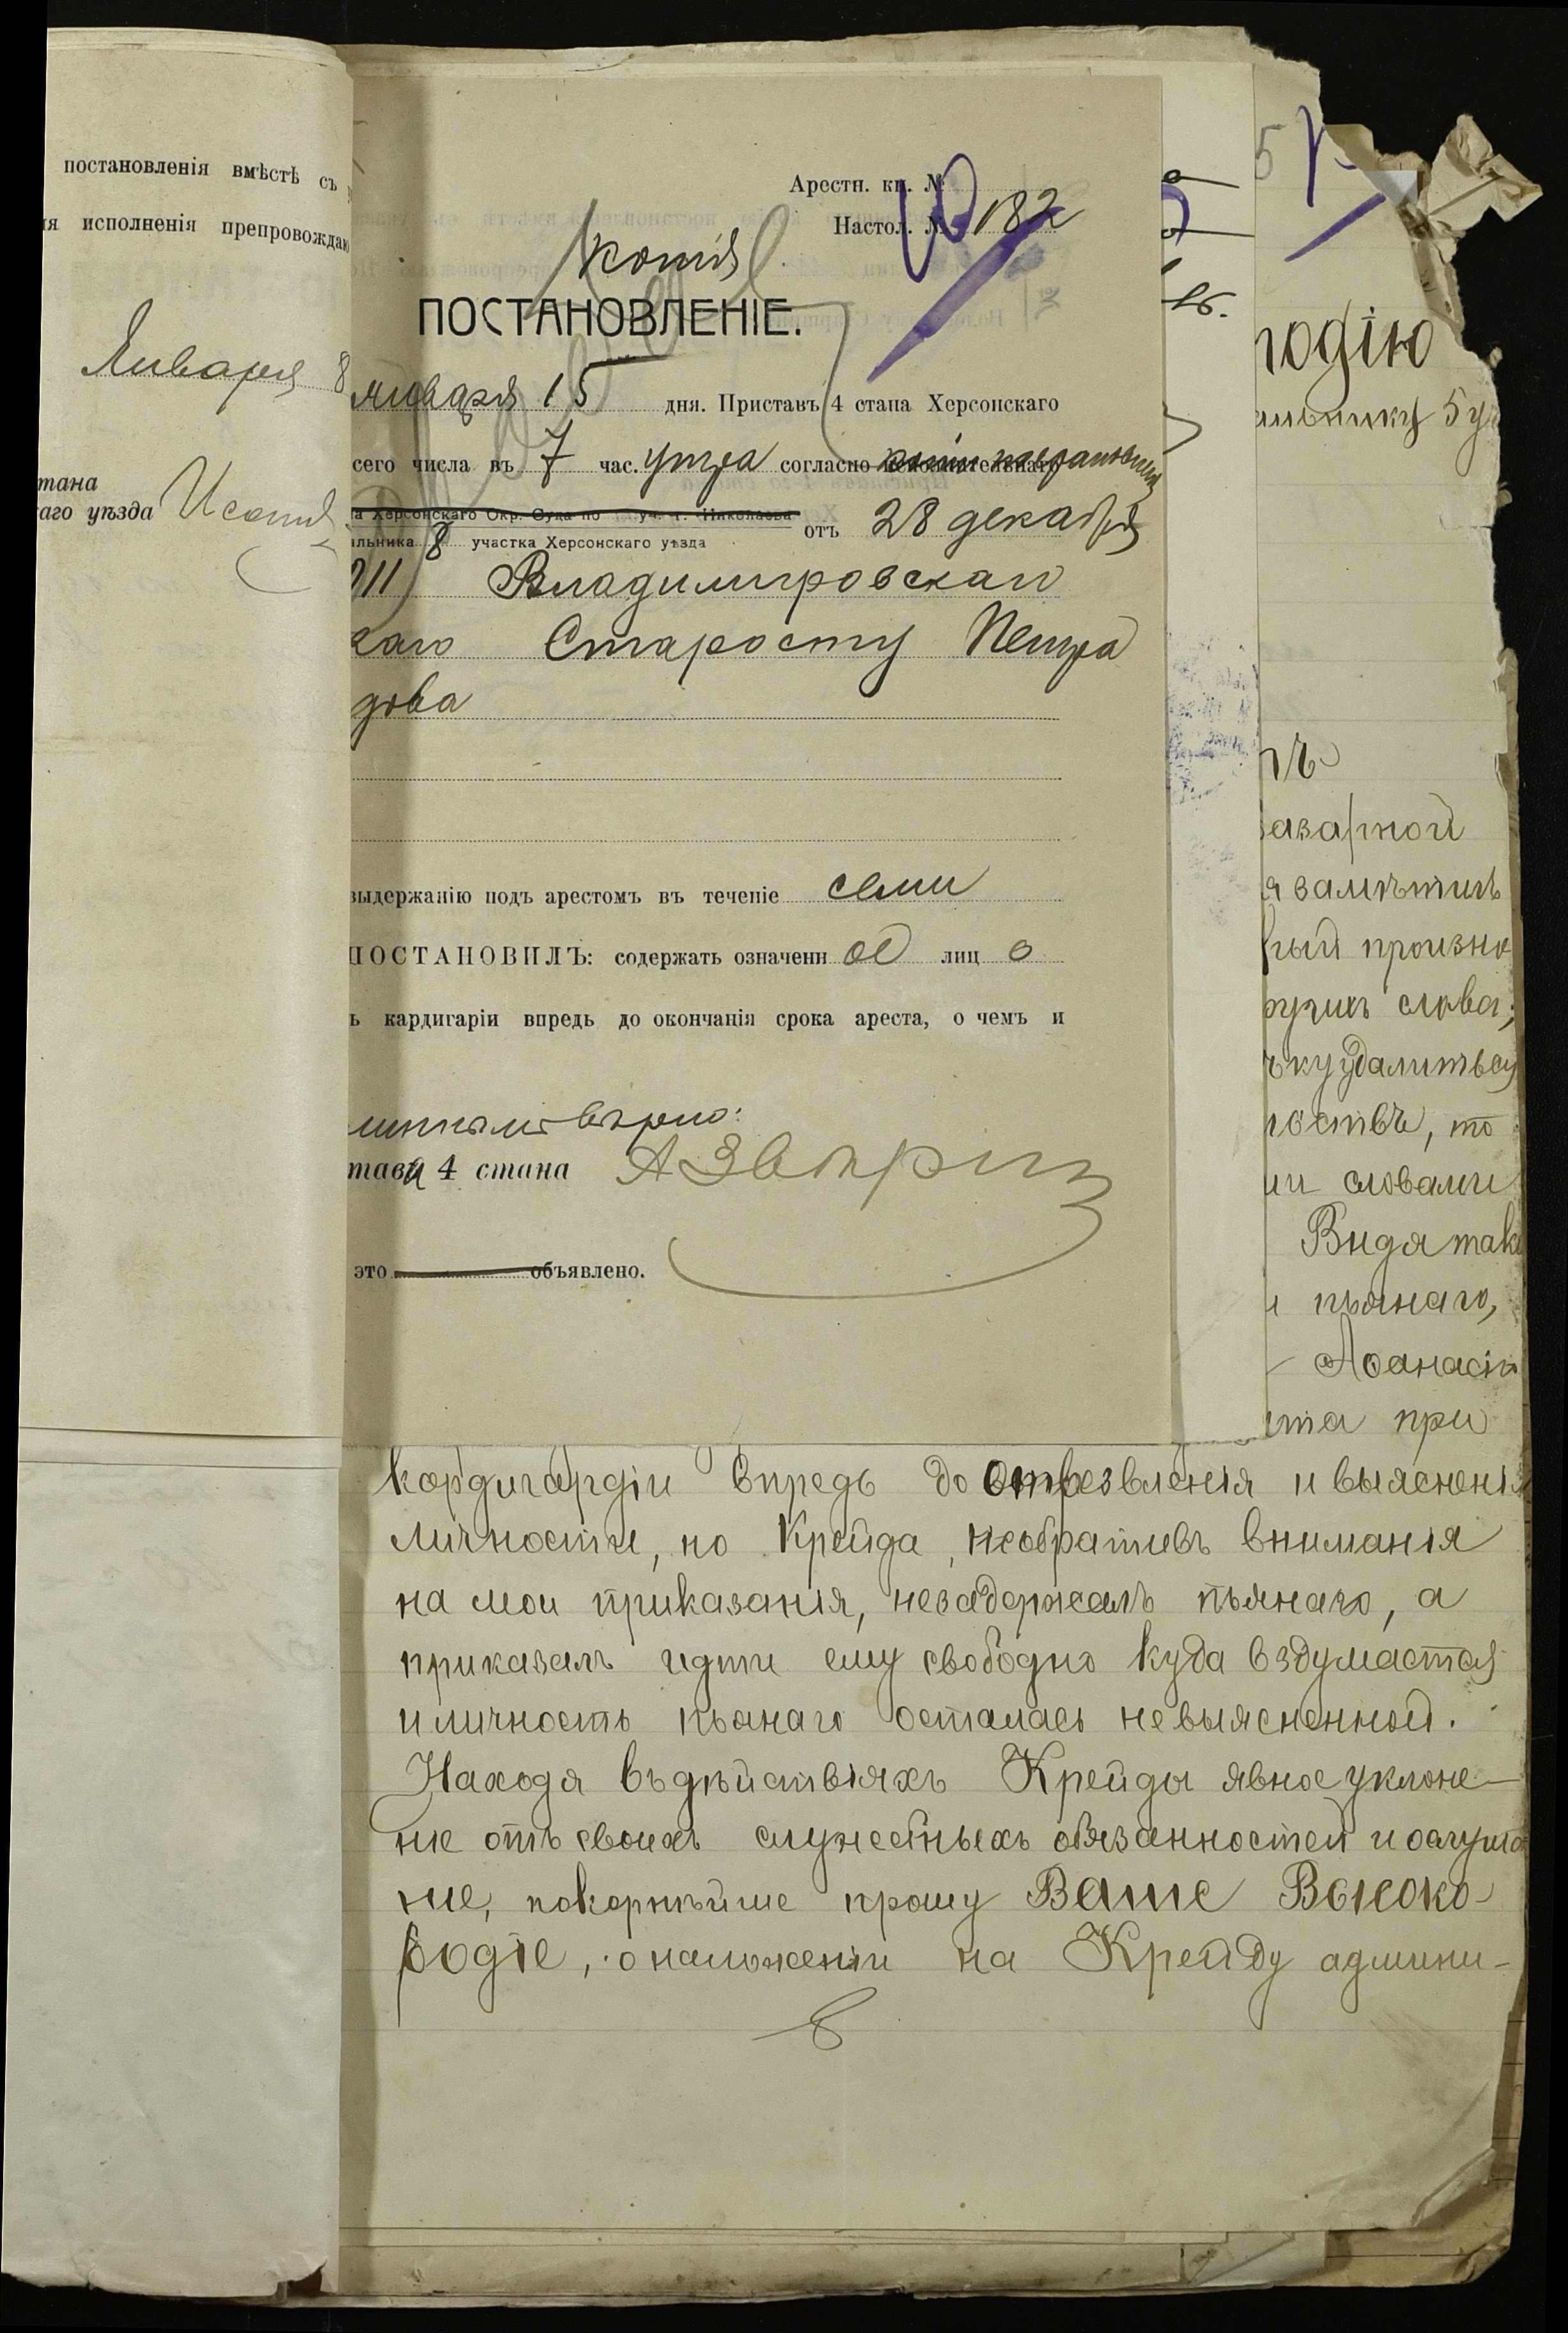 постановленія вмѣстѣ съ
исполненія препровождаю
Января 8
стана
аго уѣзда Исонъ
Арестн. кн. №
Настол. № 182
Копія
ПОСТАНОВЛЕНІЕ.
января 15 дня. Приставъ 4 стана Херсонскаго
сего числа въ 7 час. утра согласно копіи постановленія
а Херсонскаго Окр. Суда по уч. г. Николаева
альника 8 участка Херсонскаго уѣзда отъ 28 декабря
911) Владимировскаго
каго Старосту Петра
дова
выдержанію подъ арестомъ въ теченіе семи
ПОСТАНОВИЛЪ: содержать означенн ое лиц о
ь кардигаріи впредь до окончанія срока ареста, о чемъ и
вѣрно:
става 4 стана
это объявлено.
16.
5
родію
альнику 5 у
базарной
я замѣтилъ
ный произно
слова;
ку удалиться
то
ми словами
Видя тако
и пьянаго,
Аѳанасію
ста при
Кордигардіи впредь до отрезвленія и выясненія
личности, но Крейда, необративъ вниманія
на мои приказанія, незадержалъ пьянаго, а
приказалъ идти ему свободно куда вздумается
и личность пьянаго осталась невыясненной.
Находя въ дѣйствіяхъ Крейды явное уклоне-
ніе отъ своихъ служебныхъ обязанностей и ослуша
ніе, покорнѣйше прошу Ваше Высоко-
родіе, о наложеніи на Крейду админи-